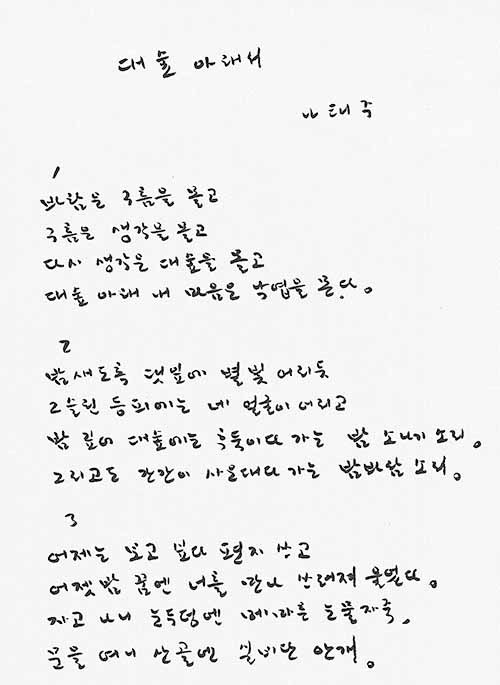 대숲 아래서
나태주
1
바람은 구름을 몰고
구름은 생각을 몰고
다시 생각은 대숲을 몰고
대숲 아래 내 마음은 낙엽을 몬다.
2
밤새도록 댓잎에 별빛 어리듯
그슬린 등피에는 네 얼굴이 어리고
밤 깊어 대숲에는 후둑이다 가는 밤 소나기 소리.
그리고도 간간이 사운대다 가는 밤바람 소리.
3
어제는 보고 싶다 편지 쓰고
어젯밤 꿈엔 너를 만나 쓰러져 울었다.
자고 나니 눈두덩엔 메마른 눈물자죽.
문을 여니 산골엔 실비단 안개.